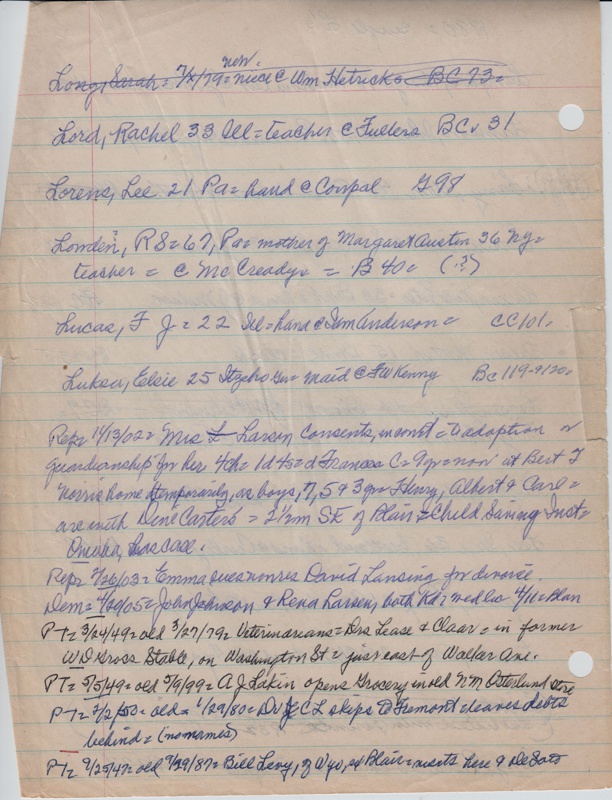 new.
Long, Sarah = 7/x/79 = niece @ Wm Hetricks BC 73 =
Lord, Rachel 33 Ill = teacher @ Fullers BC 31
Lorens, Lee 21 Pa = hand @ G98
Lomden, R S = 67, Pa = mother of Margaret Austin 36 Ny =
teacher = @ McCreadys = B 40 = (?)
Lucas, F J = 22 Ill = hand @ Sam Anderson = CC 101.
Luksa, Elsie 25 Itzeho Ger = maid @ F W Kenny BC 119-9120 =
Rep = 1/13/02 = Mrs L Larsen consents, = to adoption or
guardianship for her 4ch = 1d 4s = d Frances C = 9 yr = now at Bert T
Norris home temporarily, as boys, 7, 5 & 3 yr = Henry, Albert & Carl =
are with Carters = 2½ m SE of Blair = Child Saving Inst =
Omaha, has case.
Rep = 2/26/03 = Emma sues nonres David Lansing for divorce.
Dem = 4/20/05 = John Johnson & Rena Larsen, both Kd = wed Co 4/11 = Blair
PT = 3/24/49 = old 3/27/79 = Veterinarians = Drs Lease & Clear = in former
W D Gross Stable, on Washington St = just east of Walker Ave.
PT = 5/5/49 = old 5/9/99 = A J Lakin opens Grocery in old N M Osterlund store
PT = 2/2/50 = old = 1/29/80 = Dr C L skips to Fremont = leaves debts
behind = (no names)
PT = 9/25/47 = old 9/29/87 = Bill Levy, of Wyo, ex Blair = visits here & DeSoto